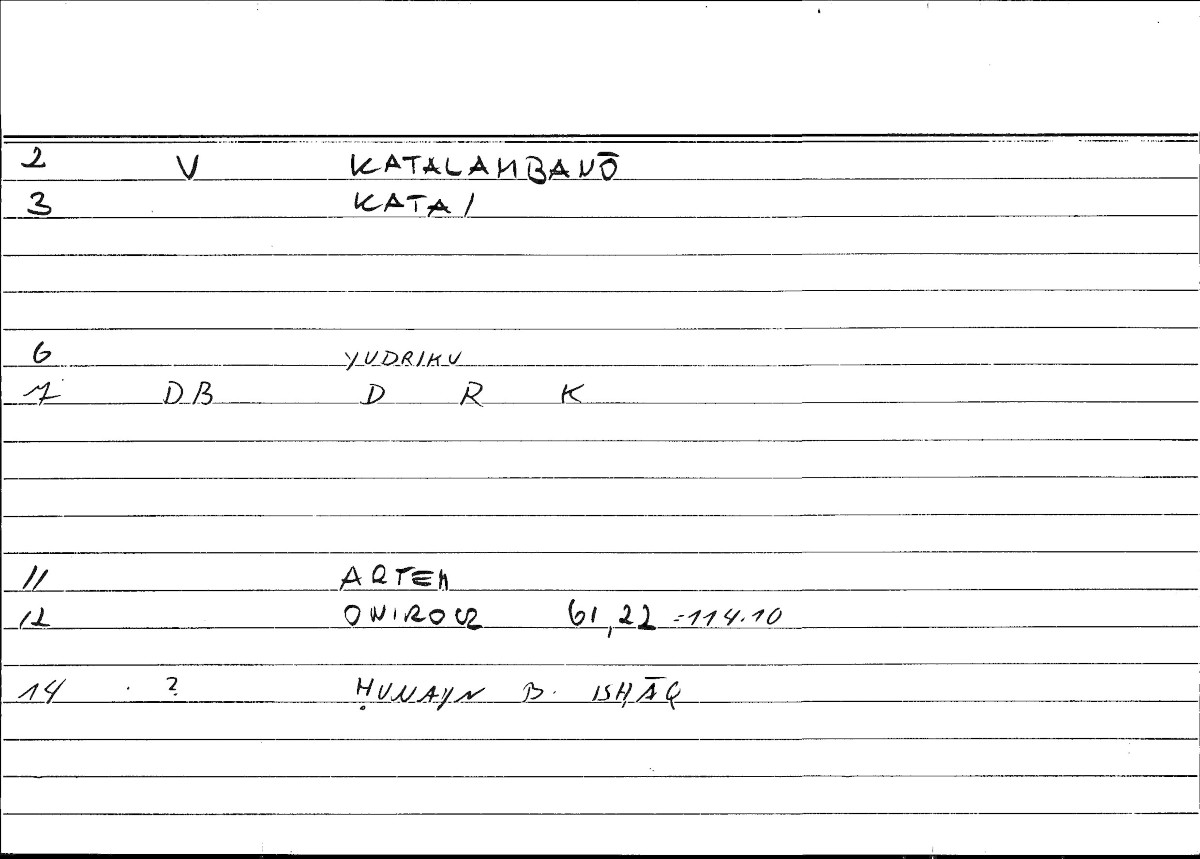 2 V KATALAMBANŌ
3 KATA/
6 YUDRIKU
7 DB D R K
11 ARTEM
12 ONIROCR 61,22 =114.10
14 ? ḤUNAYN B. ISḤĀQ